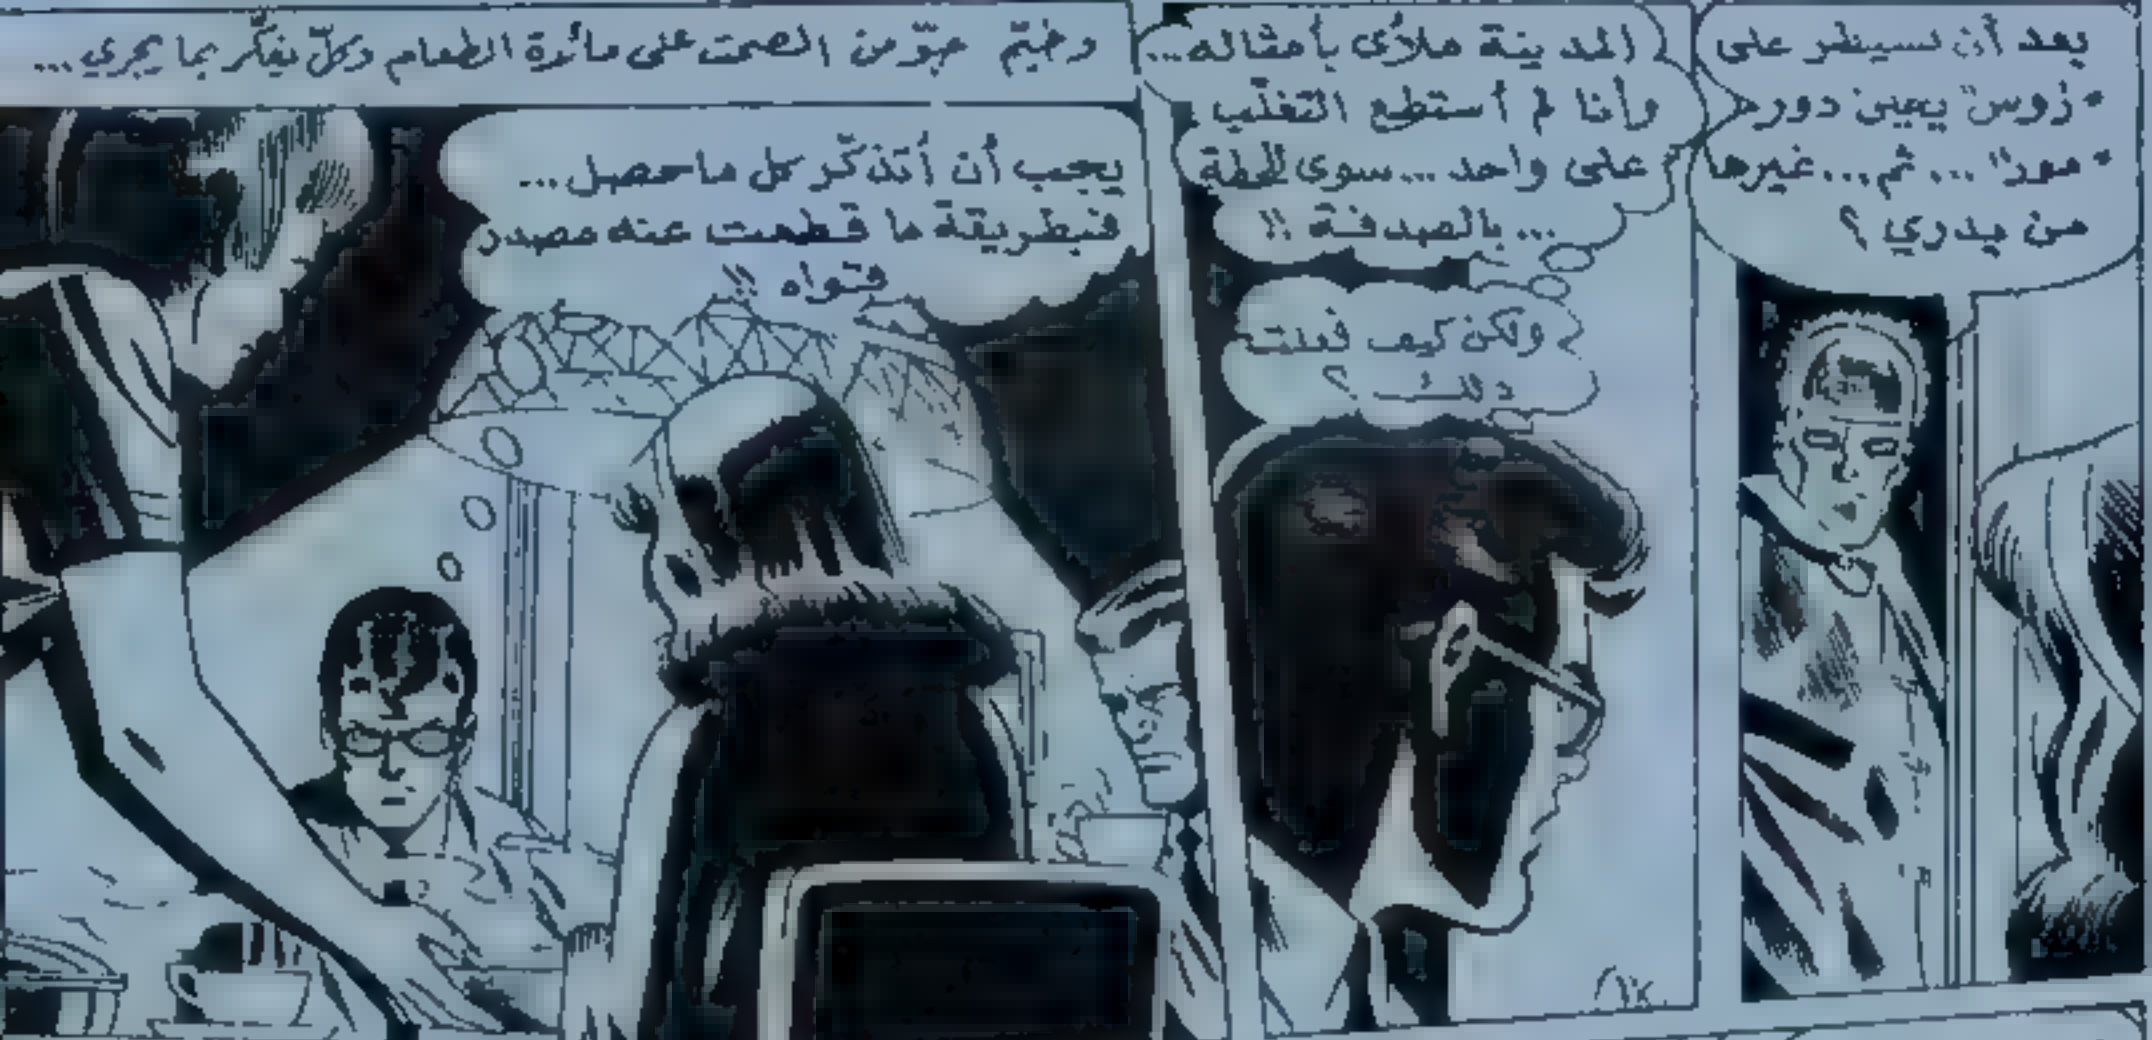 بعد أن نسيطر على
"زوس" يحين دور
"مورا" ... ثم... غيرها
من يدري ؟
المدينة ملأى بأمثاله...
وأنا لم أستطع التغلّب
على واحد... سوى للحظة
... بالصدفة !!
ولكن كيف فعلت
ذلك ؟
وخيّم جوّ من الصمت على مائدة الطعام وكلّ يفكّر بما يجري...
يجب أن أتذكّر كل ما حصل...
فبطريقة ما قطعت عنه مصدر
قواه !!